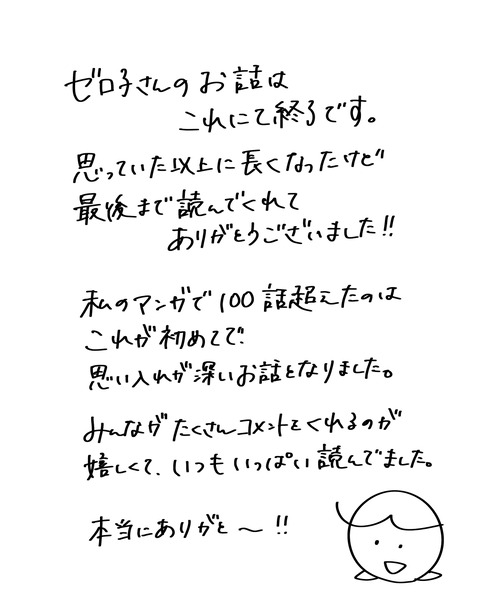 ゼロ子さんのお話は
これにて終了です。
思っていた以上に長くなったけど
最後まで読んでくれて
ありがとうございました!!
私のマンガで100話超えたのは
これが初めてで
思い入れが深いお話となりました。
みんながたくさんコメントをくれるのが
嬉しくて、いつもいっぱい読んでました。
本当にありがと〜!!